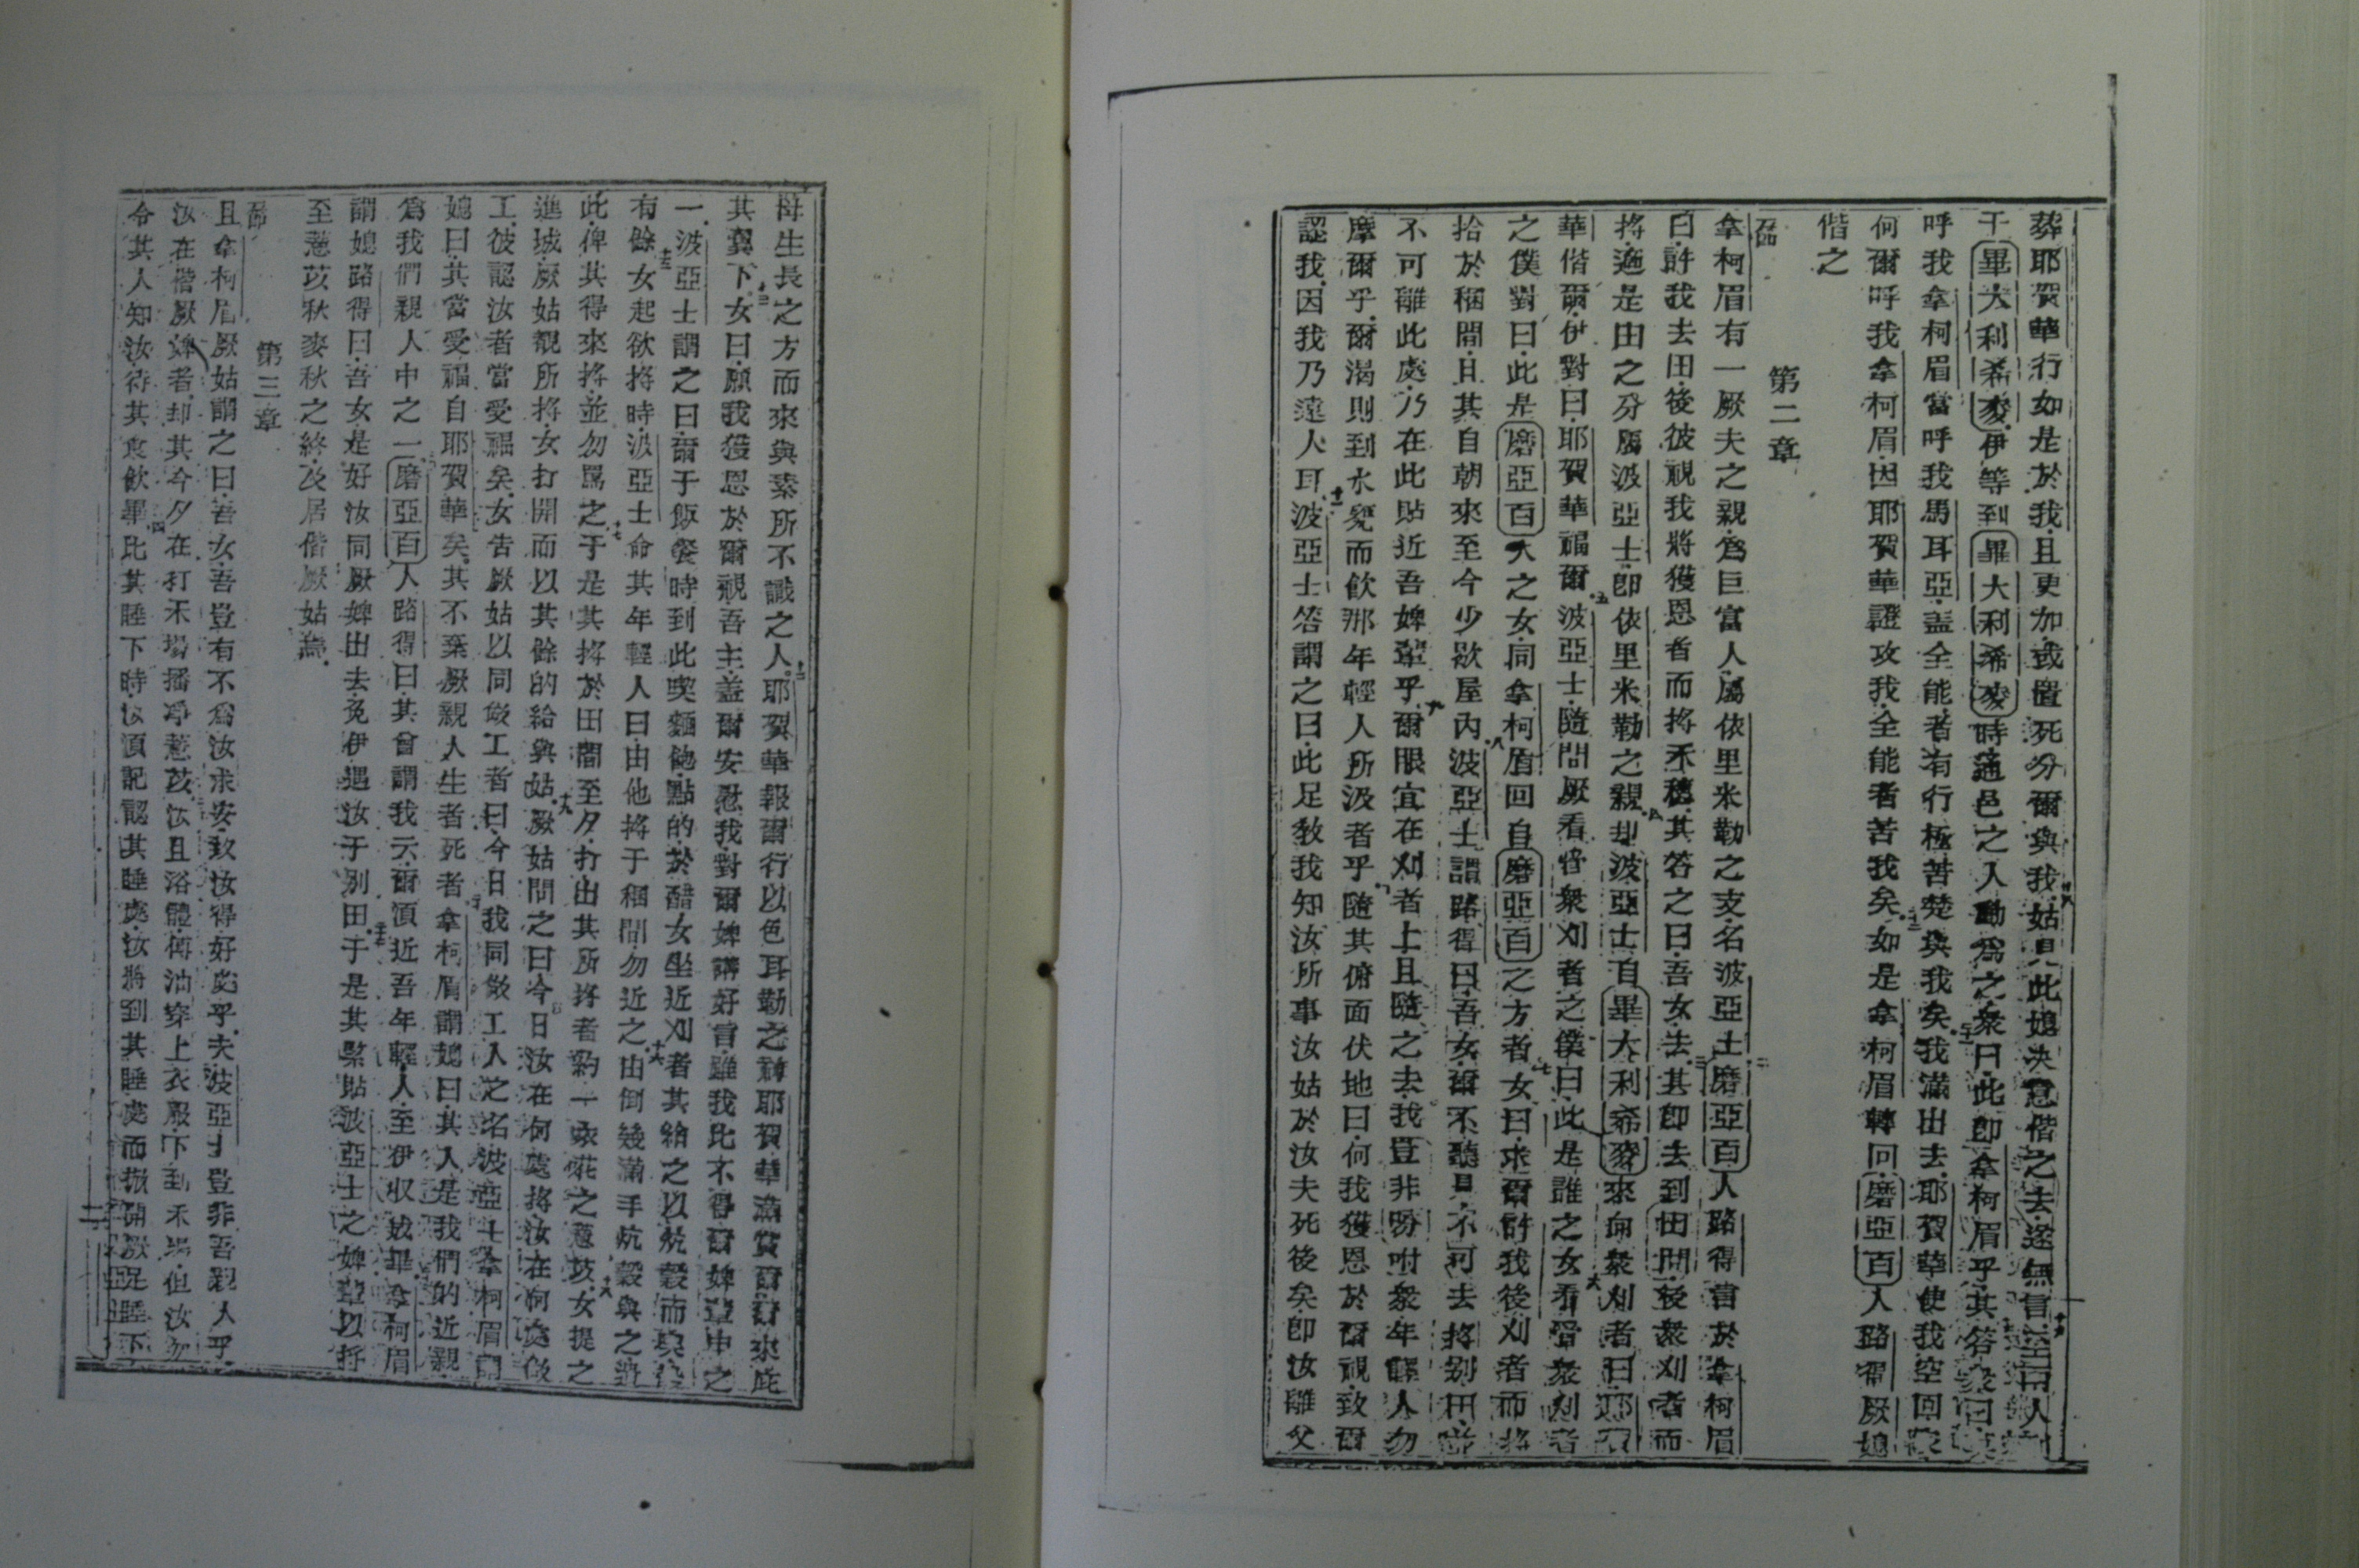 葬耶賀華行如是於我且更加或置死分爾與我姑見此媳決意偕之去遂無言
于畢大利希麥伊等到畢大利希麥時通邑之人動為之衆曰此卽拿柯眉乎其答衆曰
呼我拿柯眉當呼我馬耳亞盖全能者有行極苦楚與我矣我滿出去耶賀華使我空回
何爾呼我拿柯眉因耶賀華證攻我全能者苦我矣如是拿柯眉轉回磨亞百人路得厥媳
偕之
第二章
拿柯眉有一厥夫之親為巨富人屬依里米勒之支名波亞士磨亞百人路得言於拿柯眉
曰許我去田後彼視我將獲恩者而捋禾穗其答之曰吾女去其卽去到田間後衆刈者而
捋適是田之分屬波亞士卽依里米勒之親却波亞士自畢大利希麥來向衆刈者曰耶賀
華偕爾伊對曰耶賀華福爾波亞士隨問厥看督衆刈者之僕曰此是誰之女看督衆刈者
之僕對曰此是磨亞百人之女同拿柯眉回自磨亞百之方者女曰求爾許我後刈者而捋
拾於稇間且其自朝來至今少歇屋內波亞士謂路得曰吾女爾不聽見不可去捋别田
不可離此處乃在此貼近吾婢輩乎爾眼宜在刈者上且隨之去我豈非吩咐衆年輕人勿
摩爾乎爾渴則到水甕而飲那年輕人所汲者乎隨其俯面伏地曰何我獲恩於爾視致爾
認我因我乃遠人耳波亞士答謂之曰此足敎我知汝所事汝姑於汝夫死後矣卽汝離父
母生長之方而來與素所不識之人耶賀華報爾行以色耳勒之神耶賀華滿賞爾爾來庇
其翼下女曰願我獲恩於爾視吾主盖爾安慰我對爾婢講好言雖我比不得爾婢輩中之
一波亞士謂之曰爾于飯餐時到此喫麵飽點的於醋女坐近刈者其給之以炕穀而
有餘女起欲捋時波亞士命其年輕人曰由他捋于稇間勿近之由倒幾滿手炕穀與之
此俾其得來捋並勿罵之于是其捋於田間至夕打出其所捋者約一𠲖𠰻之薏苡女提之
進城厥姑覩所捋女打開而以其餘的給與姑厥姑問之曰今日汝在何處捋汝在何處做
工彼認汝者當受福矣女告厥姑以同做工者曰今日我同做工人之名波亞士拿柯眉謂
媳曰其當受福自耶賀華矣其不棄厥親人生者死者拿柯眉謂媳曰其人是我們的近親
為我們親人中之一磨亞百人路得曰其曾謂我云爾須近吾年輕人至伊收畢拿柯眉
謂媳路得曰吾女是好汝同厥婢出去免伊遇汝于别田于是其緊貼波亞士之婢輩以捋
至薏苡秋麥秋之終及居偕厥姑焉
第三章
且拿柯眉厥姑謂之曰吾女吾豈有不為汝求安致汝得好處乎夫波亞士豈非吾親人乎
汝在偕厥婢者却其今夕在打禾場播凈薏苡汝且浴體傅油穿上衣服下到禾場但汝勿
令其人知汝待其食飲畢比其睡下時汝須記認其睡處汝將到其睡處而揪開厥足睡下